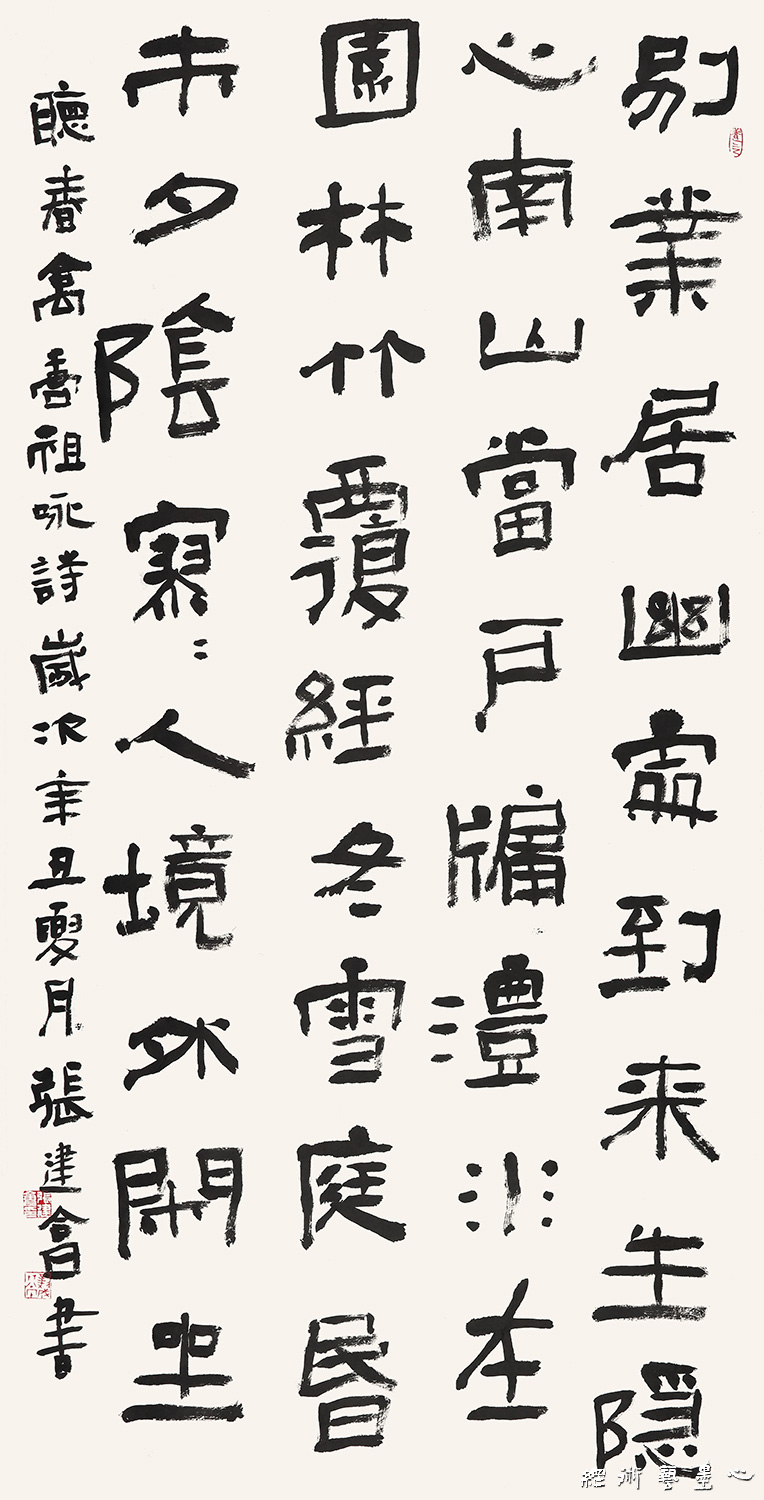 別業居幽處到来生隱
心南山當戶牖澧水在
園林竹覆經冬雪庭昏
未夕陰寥〻人境外閑坐
聽春禽唐祖咏詩歲次辛丑夏月張建會書
心墨藝術